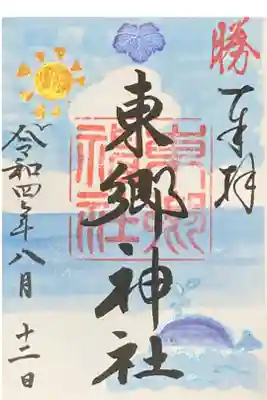 勝
奉拝
東郷神社
東郷
神社
令和四年八月
十二日